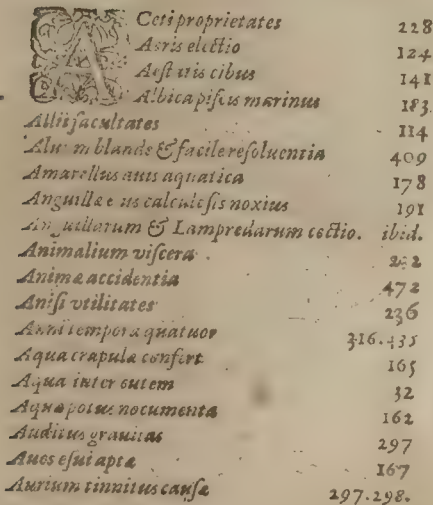 Aceti proprietates 228
Aeris electio 124
Aestatis cibus 141
Albica piscis marinus 183.
Allii facultates 114
Aluum blande & facile resoluentia 409
Amarellus auis aquatica 178
Anguillæ esus calculosis noxius 191
Anguillarum & Lampredarum coctio. ibid.
Animalium viscera 2
Animæ accidentia 472
Anisi vtilitates 236
Anni tempora quatuor 316.435
Aqua crapulæ confert 165
Aqua inter cutem 32
Aquæ potus nocumenta 162
Auditus grauitas 297
Aues esui aptæ 167
Aurium tinnitus causæ 297.298.